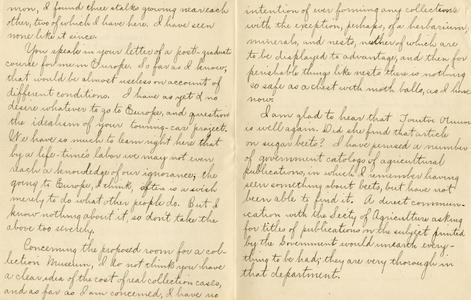 mon, I found three stalks growing near each
other, two of which I have here. I have seen
none like it since.
You speak in your letter of a post-graduate
course for me in Europe. So far as I know,
that would be almost useless on account of
different conditions. I have as yet no
desire whatever to go to Europe, and question
the idealism of your touring-car project.
We have so much to learn right here that
by a life-times labor we may not even
reach a knowledge of our ignorance; the
going to Europe, I think, often is a wish
merely to do what other people do. But I
know nothing about it, so don't take the
above too severely.
Concerning the proposed room for a col-
lection Museum, I do not think you have
a clear idea of the cost of real collection cases,
and as far as I am concerned, I have no
intention of ever forming any collections
with the exception, perhaps, of a herbarium,
minerals, and nests, neither of which are
to be displayed to advantage, and then for
perishable things like nests there is nothing
so safe as a chest with moth balls, as I have
now.
I am glad to hear that Tante
is well again. Did she find that article
on sugar beets? I have perused a number
of government catologs of agricultural
publications, in which I remember having
seen something about beets, but have not
been able to find it. A direct commun-
ication with the Secty of Agriculture asking
for titles of publications on the subject printed
by the Government would unearth every-
thing to be had; they are very thorough in
that department.